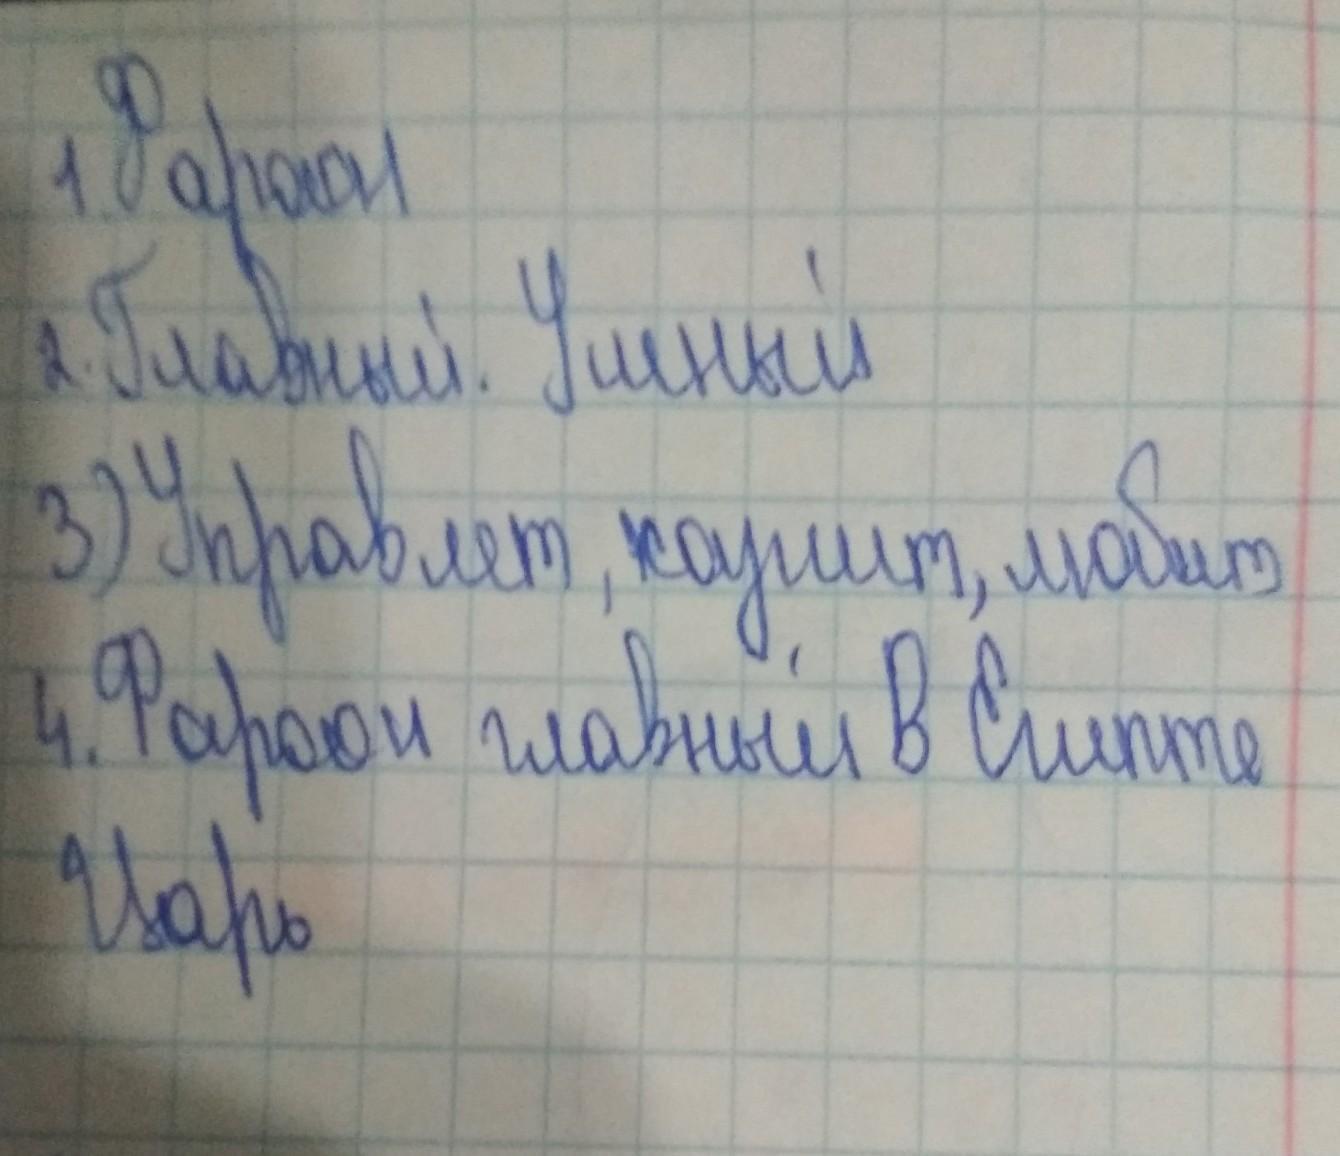 1. Фараон
2. Главный. Умный
3) Управлет, любит
4. Фараон главный В Египте
Царь